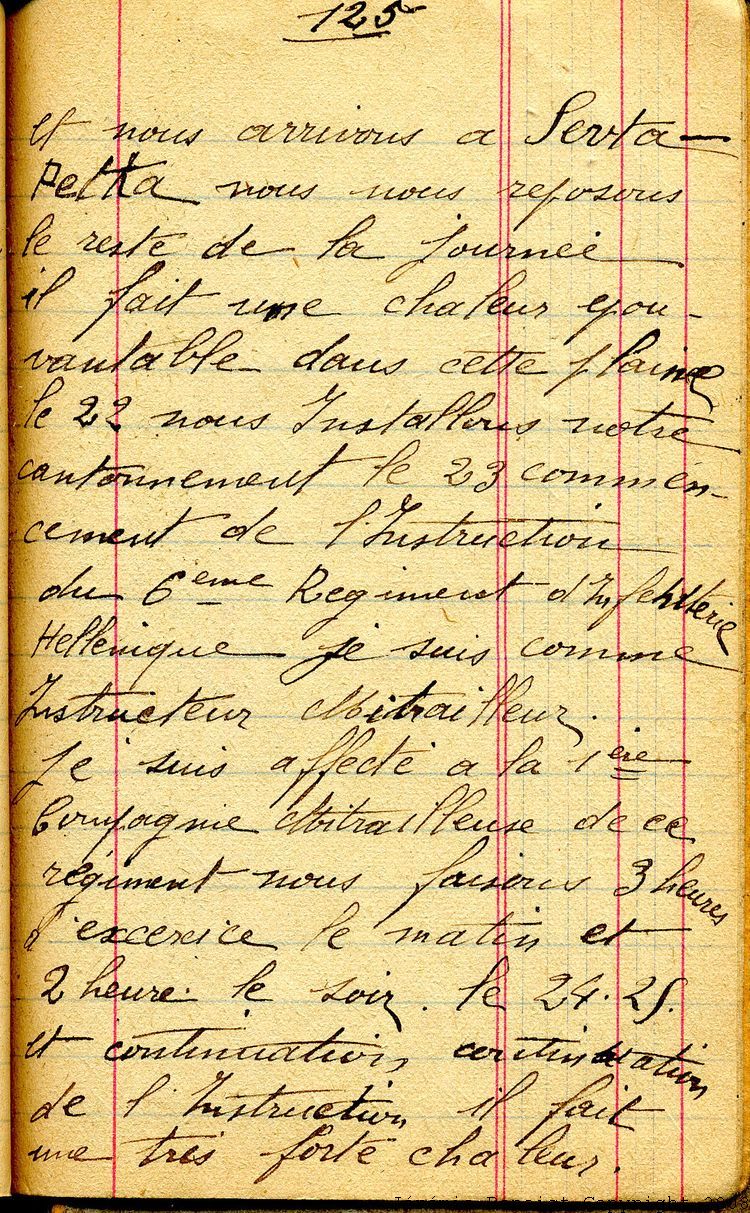 125
et nous arrivons a Servta-
Petka nous nous reposons
le reste de la journée
il fait une chaleur épou-
vantable dans cette plaine
le 22 nous Installons notre
cantonnement le 23 commen-
cement de l'Instruction
du 6eme Regiment d'Infenterie
Hellenique je suis comme
Instructeur Mitrailleur.
je suis affecté a la 1ère
Compagnie Mitrailleuse de ce
régiment nous faisons 3 heures
d'excerice le matin et
2 heure le soir. le 24. 25.
et continuation continuation
de l'Instruction il fait
une très forte chaleur.
Copyright